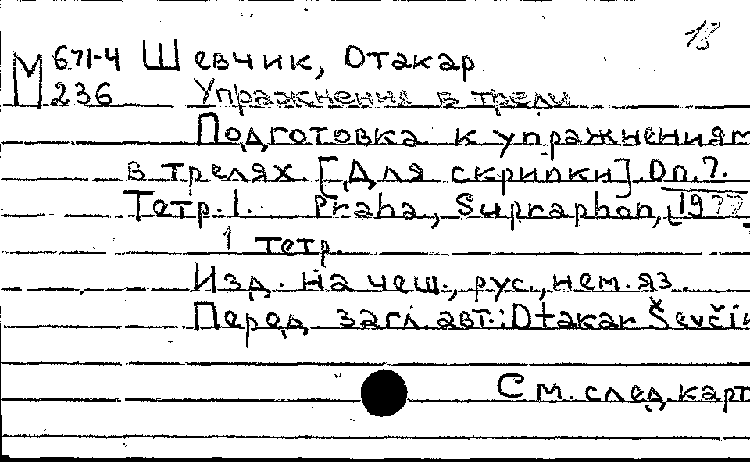 13
М 671-4 Шевчик, Отакар
236 Упражнения в трели
Подготовка к упражнениям
в трелях. [Для скрипки]. Оп. 7.
Тетр. 1. Praha, Supraphon, [1977
1 тетр.
Изд. на чеш., рус., нем. яз.
Перед загл. авт.: Otakar Ševčik
См. след. карт